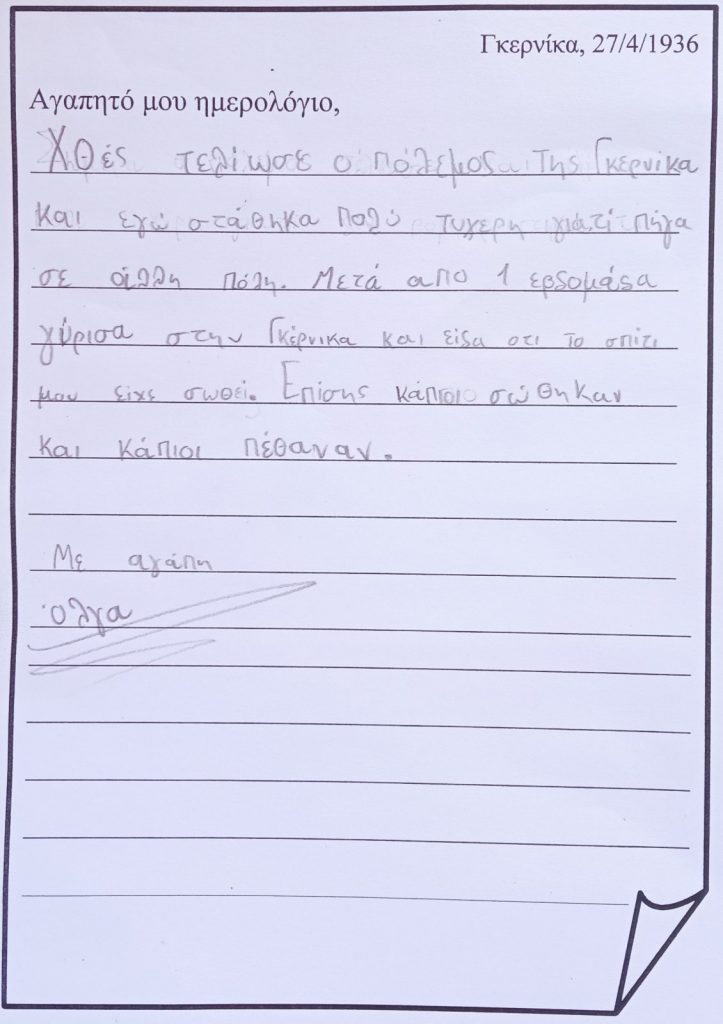 Γκερνίκα, 27/4/1936
Αγαπητό μου ημερολόγιο,
Χθές τελίωσε ο πόλεμος της Γκερνίκα
και εγώ στάθηκα πολύ τυχερη γιατί πήγα
σε άλλη πόλη. Μετά απο 1 εβδομάδα
γύρισα στην Γκέρνικα και είδα οτι το σπίτι
μου είχε σωθεί. Επίσης κάπιοι σώθηκαν
και κάπιοι πέθαναν.
Με αγάπη
Όλγα